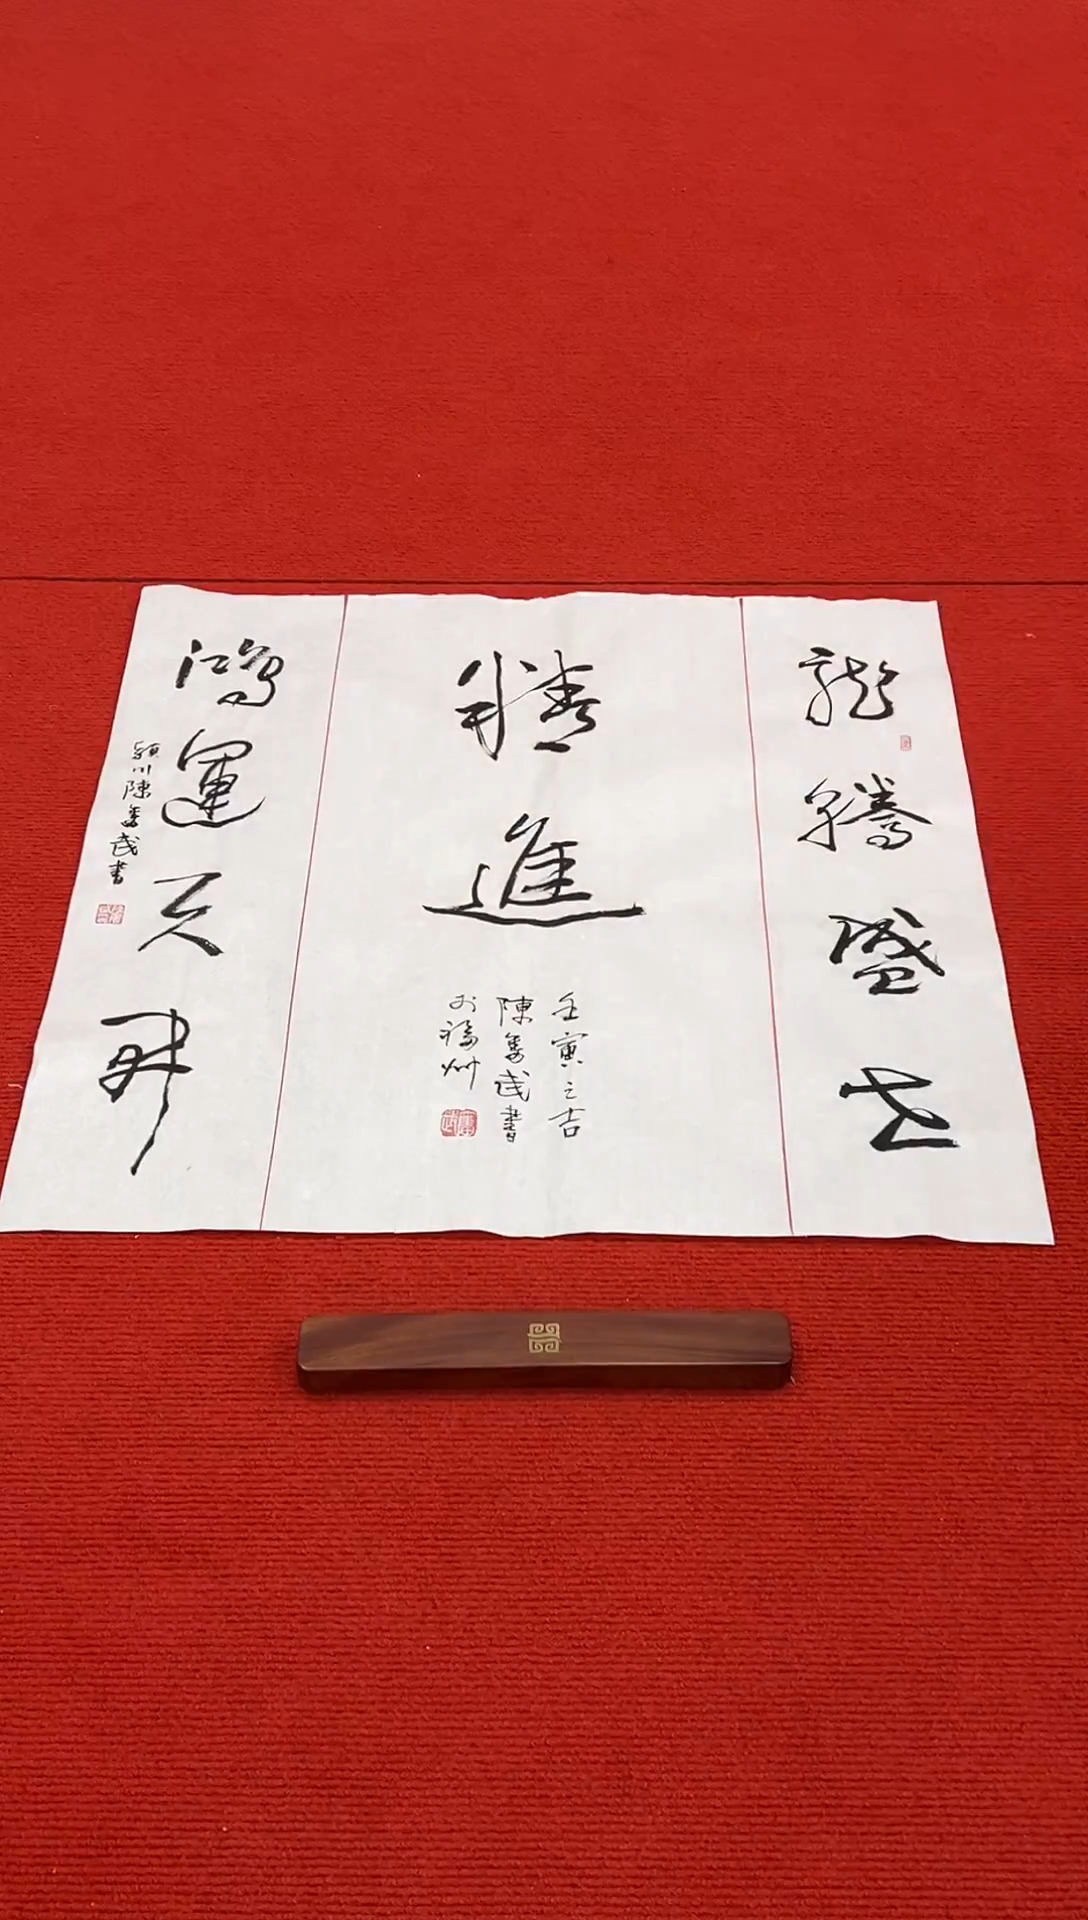 龍騰盛世
精進
壬寅之吉
陳武書
於福州
鴻運天昇
穎川陳武書